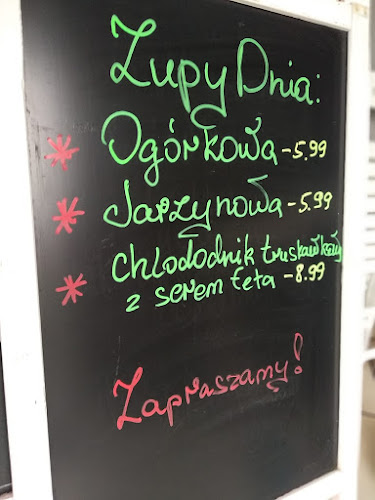 Zupy Dnia:
* Ogórkowa - 5.99
* Jarzynowa - 5.99
* Chłodnik truskawkowy
z serem feta - 8.99
Zapraszamy!